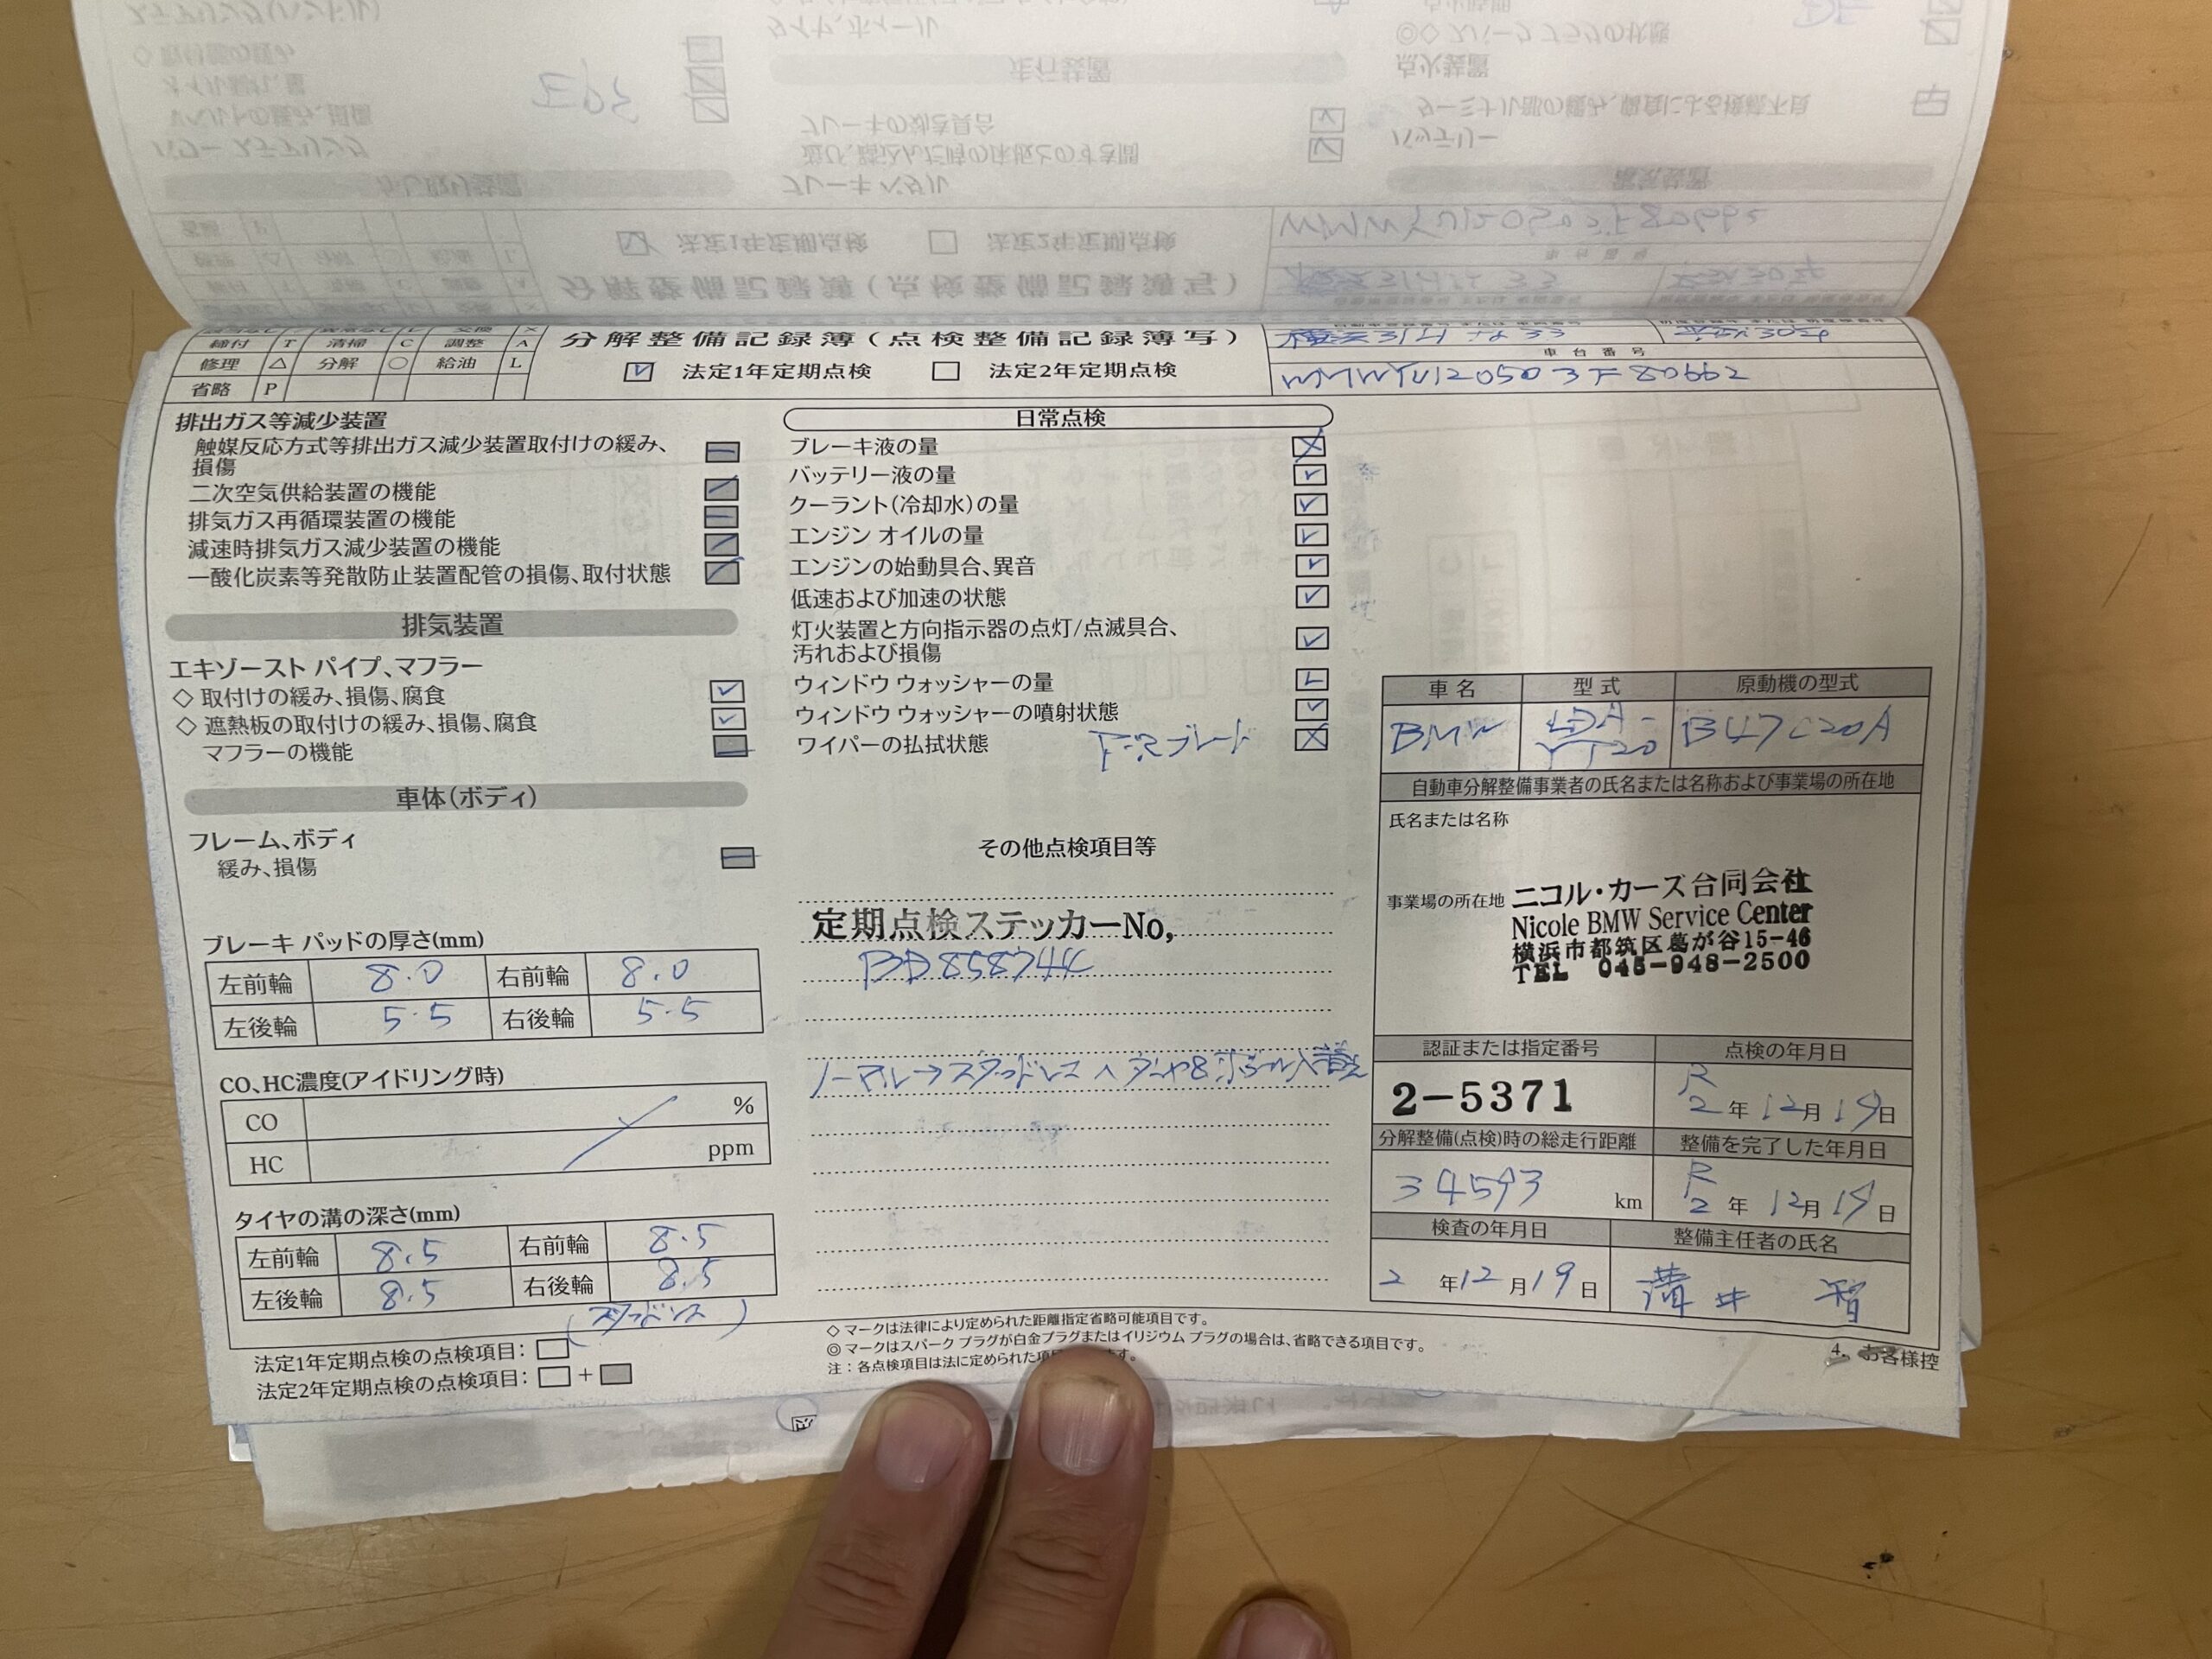 締付 T 清掃 C 調整 A
修理 △ 分解 ○ 給油 L
省略 P
分解整備記録簿(点検整備記録簿写)
☑ 法定1年定期点検 □ 法定2年定期点検
車台番号
WMWYU120503F80662
排出ガス等減少装置
触媒反応方式等排出ガス減少装置取付けの緩み、
損傷
二次空気供給装置の機能
排気ガス再循環装置の機能
減速時排気ガス減少装置の機能
一酸化炭素等発散防止装置配管の損傷、取付状態
排気装置
エキゾースト パイプ、マフラー
◇ 取付けの緩み、損傷、腐食
◇ 遮熱板の取付けの緩み、損傷、腐食
マフラーの機能
車体(ボディ)
フレーム、ボディ
緩み、損傷
ブレーキ パッドの厚さ(mm)
左前輪 8.0 右前輪 8.0
左後輪 5.5 右後輪 5.5
CO、HC濃度(アイドリング時)
CO %
HC ppm
タイヤの溝の深さ(mm)
左前輪 8.5 右前輪 8.5
左後輪 8.5 右後輪 8.5
(スタッドレス)
法定1年定期点検の点検項目: □
法定2年定期点検の点検項目: □ +
日常点検
ブレーキ液の量
バッテリー液の量
クーラント(冷却水)の量
エンジン オイルの量
エンジンの始動具合、異音
低速および加速の状態
灯火装置と方向指示器の点灯/点滅具合、
汚れおよび損傷
ウィンドウ ウォッシャーの量
ウィンドウ ウォッシャーの噴射状態
ワイパーの払拭状態 ブレード
その他点検項目等
定期点検ステッカーNo,
ノーマル→スタッドレス へ タイヤ&ホイール入替え
◇ マークは法律により定められた距離指定省略可能項目です。
◎ マークはスパーク プラグが白金プラグまたはイリジウム プラグの場合は、省略できる項目です。
注:各点検項目は法に定められた項
車名 型式 原動機の型式
BMW LDA-YT20 B47C20A
自動車分解整備事業者の氏名または名称および事業場の所在地
氏名または名称
事業場の所在地
ニコル・カーズ合同会社
Nicole BMW Service Center
横浜市都筑区葛が谷15-46
TEL 045-948-2500
認証または指定番号 点検の年月日
2-5371 R2年12月19日
分解整備(点検)時の総走行距離 整備を完了した年月日
34593 km R2年12月19日
検査の年月日 整備主任者の氏名
2年12月19日 溝井 智
4. お客様控